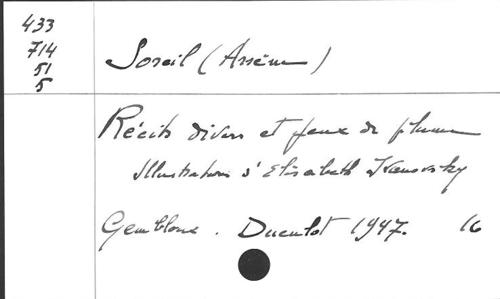 433
714
51
5
Soreil (Arsène)
Récits divers et jeux de plume
Illustrations d'Elisabeth Ivanovsky
Gembloux. Duculot 1947. 16